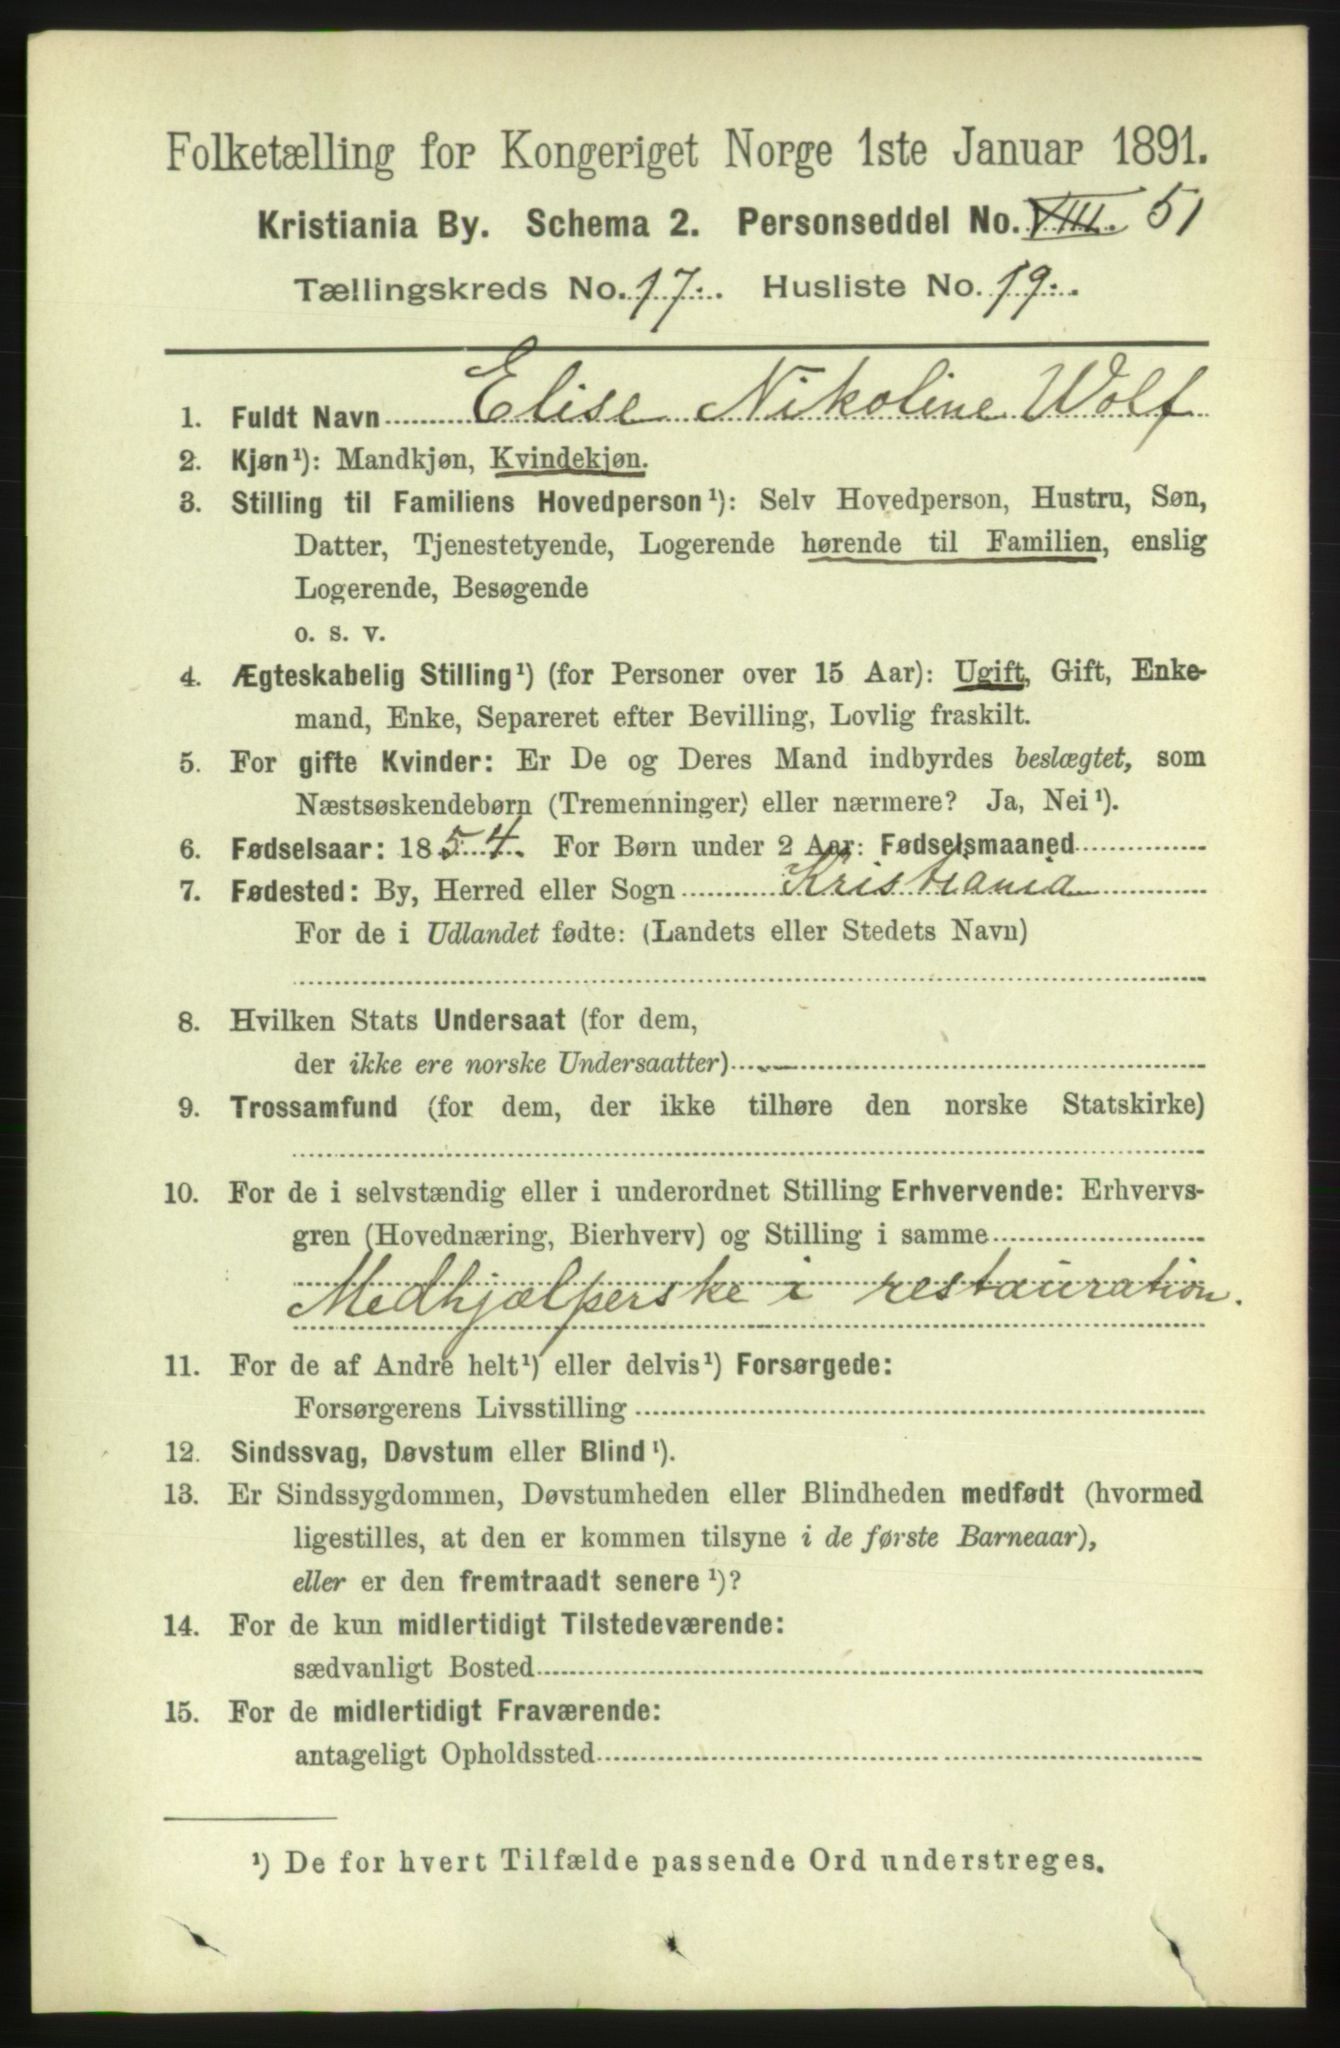 Folketælling for Kongeriget Norge 1ste Januar 1891.
Kristiania By. Schema 2. Personseddel No. VIII. 51
Tællingskreds No. 17. Husliste No. 19.
1. Fuldt Navn Elise Nikoline Wolf
2. Kjøn¹): Mandkjøn, Kvindekjøn.
3. Stilling til Familiens Hovedperson¹): Selv Hovedperson, Hustru, Søn,
Datter, Tjenestetyende, Logerende hørende til Familien, enslig
Logerende, Besøgende
o. s. v.
4. Ægteskabelig Stilling¹) (for Personer over 15 Aar): Ugift, Gift, Enke-
mand, Enke, Separeret efter Bevilling, Lovlig fraskilt.
5. For gifte Kvinder: Er De og Deres Mand indbyrdes beslægtet, som
Næstsøskendebørn (Tremenninger) eller nærmere? Ja, Nei¹).
6. Fødselsaar: 1854. For Børn under 2 Aar: Fødselsmaaned
7. Fødested: By, Herred eller Sogn Kristiania
For de i Udlandet fødte: (Landets eller Stedets Navn)
8. Hvilken Stats Undersaat (for dem,
der ikke ere norske Undersaatter)
9. Trossamfund (for dem, der ikke tilhøre den norske Statskirke)
10. For de i selvstændig eller i underordnet Stilling Erhvervende: Erhvervs-
gren (Hovednæring, Bierhverv) og Stilling i samme
Medhjælperske i restauration.
11. For de af Andre helt¹) eller delvis¹) Forsørgede:
Forsørgerens Livsstilling
12. Sindssvag, Døvstum eller Blind¹).
13. Er Sindssygdommen, Døvstumheden eller Blindheden medfødt (hvormed
ligestilles, at den er kommen tilsyne i de første Barneaar),
eller er den fremtraadt senere¹)?
14. For de kun midlertidigt Tilstedeværende:
sædvanligt Bosted
15. For de midlertidigt Fraværende:
antageligt Opholdssted
¹) De for hvert Tilfælde passende Ord understreges.